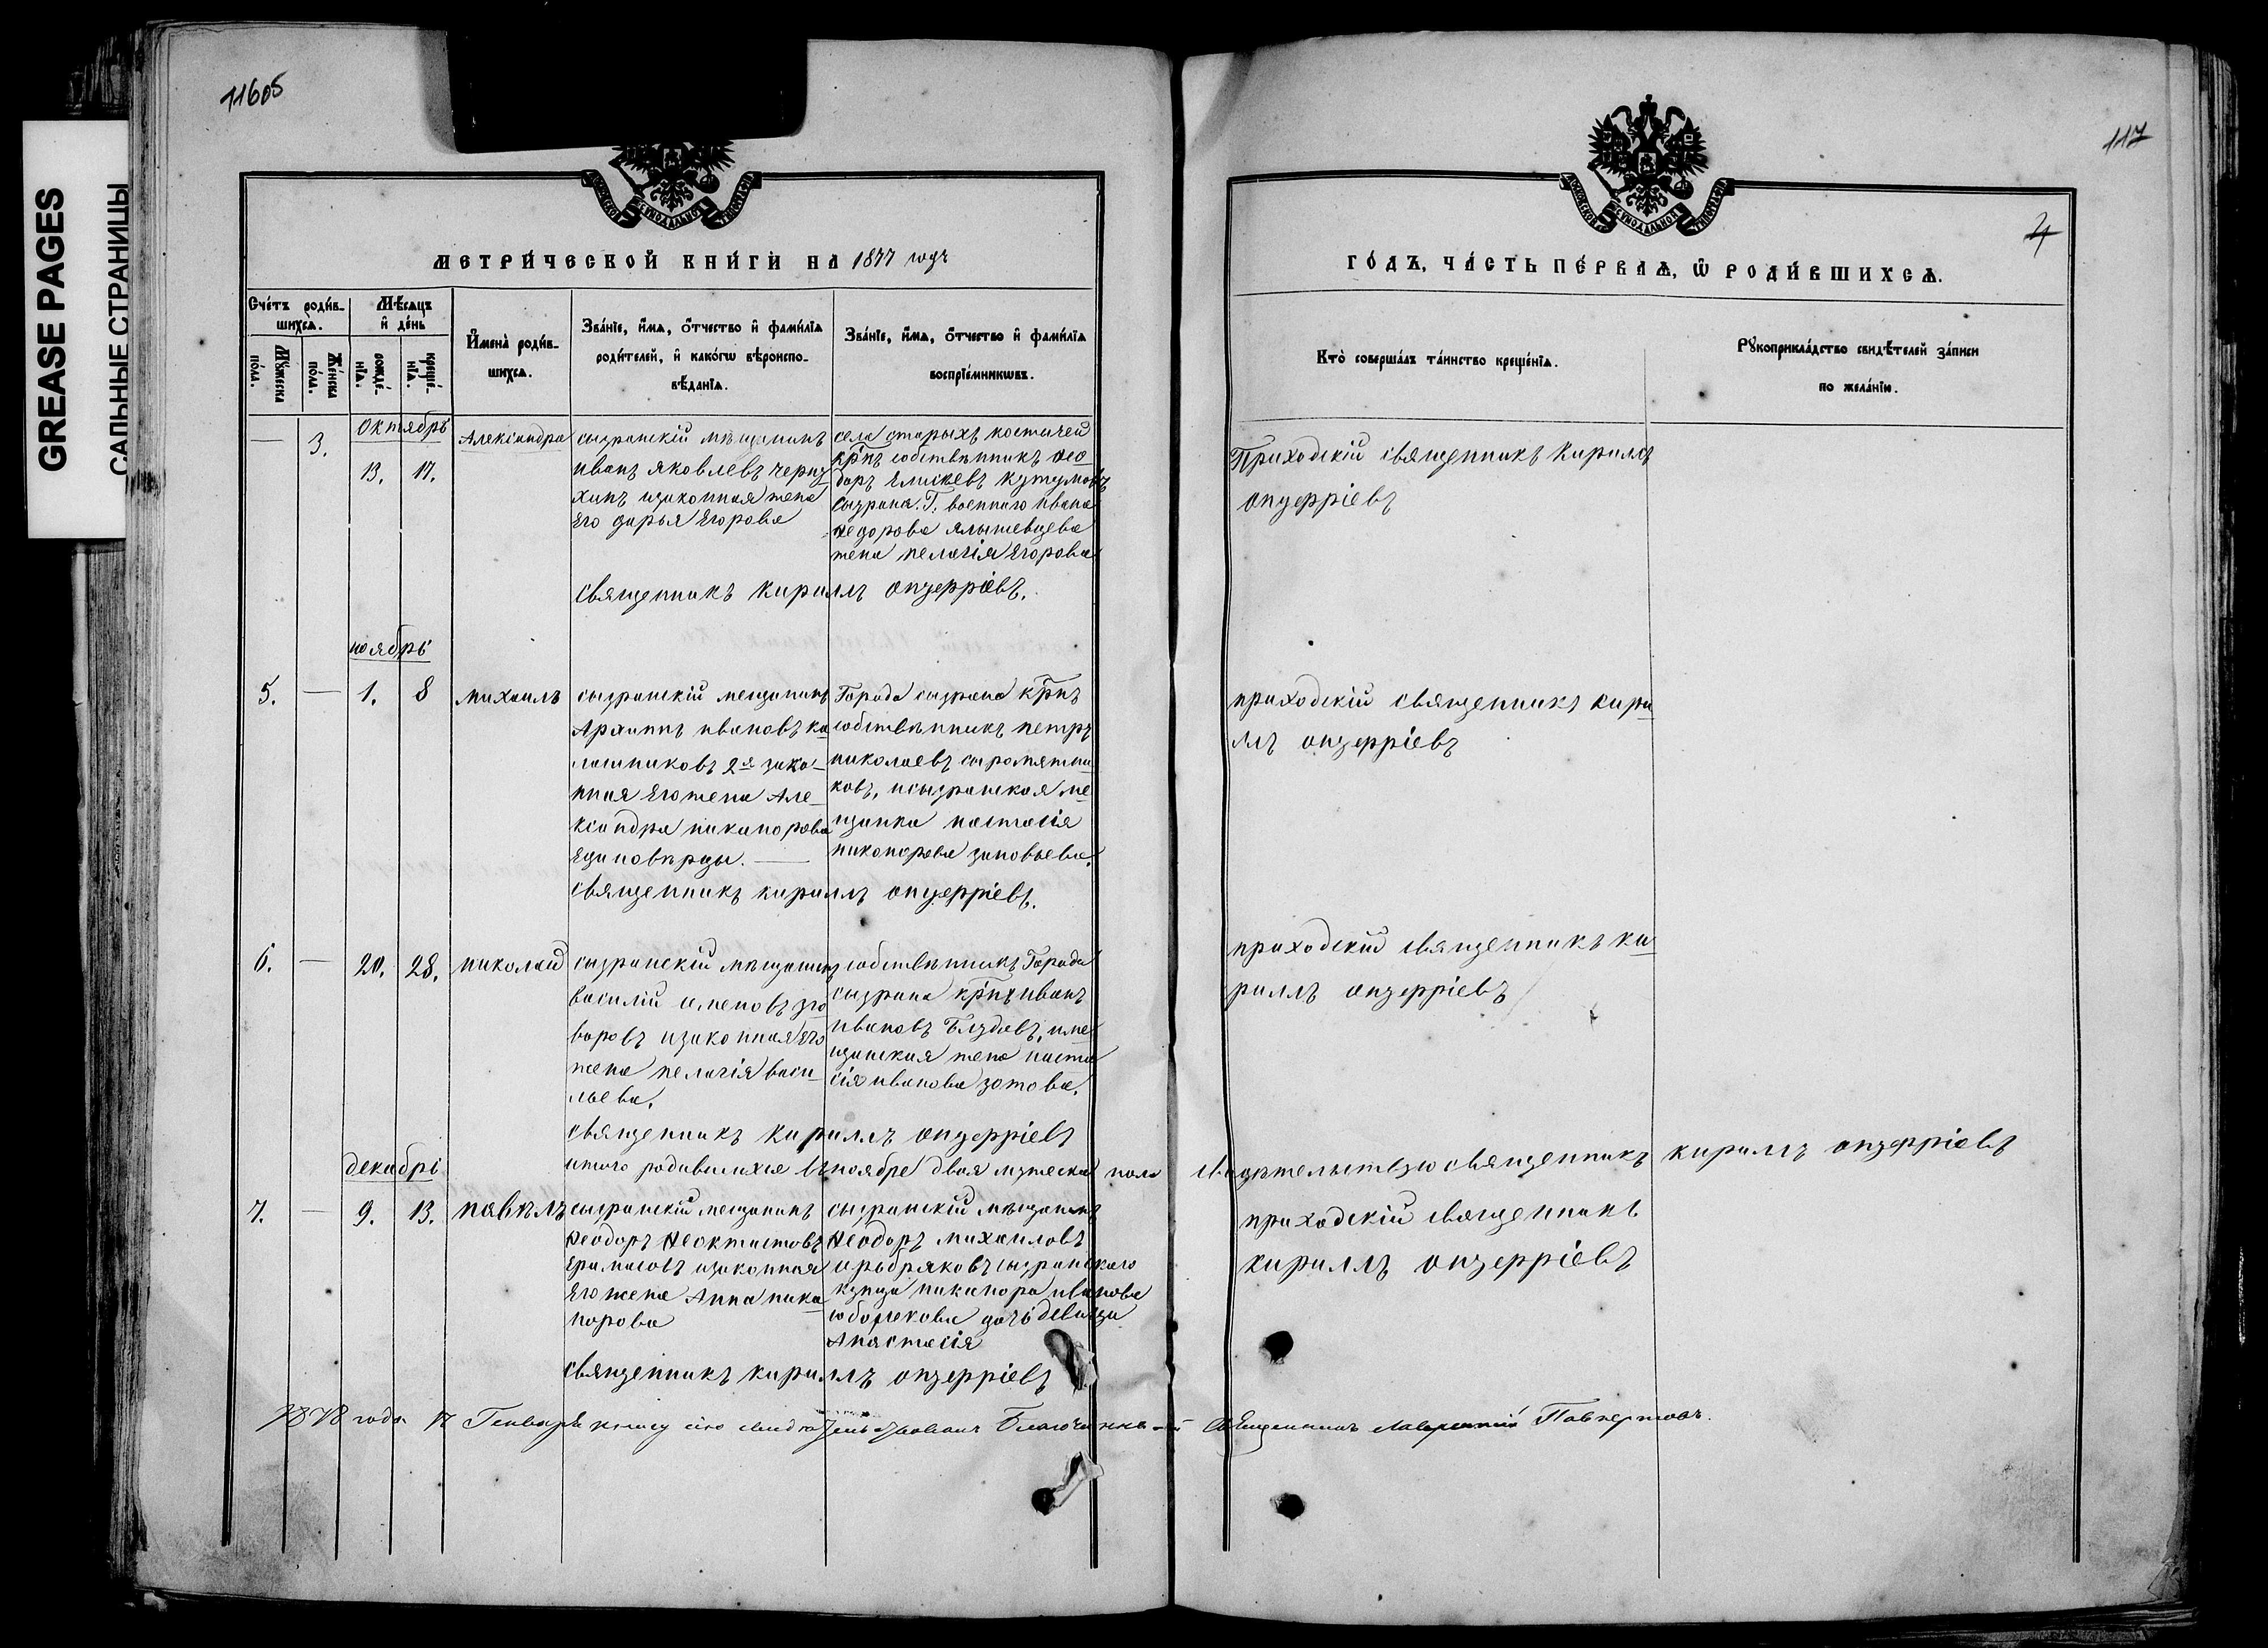 GREASE PAGES
САЛЬНЫЕ СТРАНИЦЫ
11605
117
4
МЕТРИ́ЧЕСКОЙ КНИ́ГИ НА 1877 годъ
ГО́ДЪ, ЧА́СТЬ ПЕ́РВАѦ, Ѡ҆ РОДИ́ВШИХСѦ.
Сче́тъ роди́в-
шихсѧ.
Мѣ́сѧцъ
и҆ де́нь
Мꙋ́жеска
по́ла.
Же́нска
по́ла.
рожде́-
нїѧ.
креще́-
нїѧ.
И҆мена̀ роди́в-
шихсѧ.
Зва́нїе, и҆́мѧ, ѻ҆́тчество и҆ фами́лїѧ
роди́телей, и҆ како́гѡ вѣроиспо-
вѣ́данїѧ.
Зва́нїе, и҆́мѧ, ѻ҆́тчество и҆ фами́лїѧ
воспрїе́мникѡвъ.
Кто̀ соверша́лъ та́инство креще́нїѧ.
Рꙋкоприкла́дство свидѣ́телей за́писи
по жела́нїю.
Октябрь
— 3. 13. 17. Александра
сызранскій мѣщанинъ
иванъ яковлевъ черну
хинъ изаконная жена
его дарья егорова
села старыхъ костычей
кр̃нъ собствѣнникъ Фео
доръ Елисѣевъ кутумовъ
Сызрана. Г. военнаго ивана
Федорова
жена пелагія Егорова
священникъ кириллъ онуерріевъ.
Приходскій священникъ Кириллъ
онуерріевъ
ноябрь
5. — 1. 8 михаилъ
сызранскій мещанинъ
Архипъ ивановъ ка
лашниковъ 2я зако—
нная Его жена Але—
ксандра никанорова
Единовѣрцы. —
Города сызрана кр̃нъ
собствѣнникъ петръ
николаевъ сыромятни
ковъ, исызранская ме
щанка настасія
никонорова зиновьева.
священникъ кириллъ онуерріевъ.
приходскій священникъ кири
ллъ онуерріевъ
6. — 20. 28. николай
сызранскій мѣщанинъ
василій семеновъ зго
воровъ изаконная Его
жена пелагія васи—
льева.
собствѣнникъ Города
сызрана кр̃нъ иванъ
ивановъ Блудовъ, име
щанская жена наста
сія иванова зотова.
священникъ кириллъ онуерріевъ
приходскій священникъ ки
риллъ онуерріевъ
итого родившихся въ ноябре двоя мужеска пола свидѣтельствую священникъ кириллъ онуерріевъ
декабрь
7. — 9. 13. павѣлъ
сызранскій мещанинъ
Феодоръ Феоктистовъ
Ермасовъ изаконная
Его жена Анна ника
норова
сызранскій мѣщанинъ
Феодоръ михаиловъ
серебряковъ сызранскаго
купца никанора иванова
дочь девица
Анастасія
священникъ кириллъ онуерріевъ
приходскій священникъ
кириллъ онуерріевъ
1878 года 17 Генваря книгу сію свидѣтельствовалъ Благочинный Священникъ Лаврентій